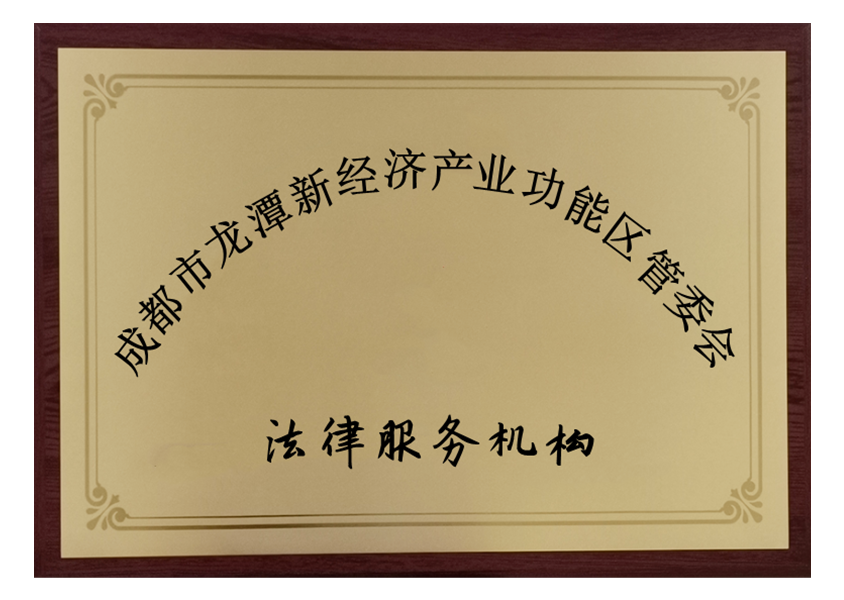 成都市龙潭新经济产业功能区管委会
法律服务机构